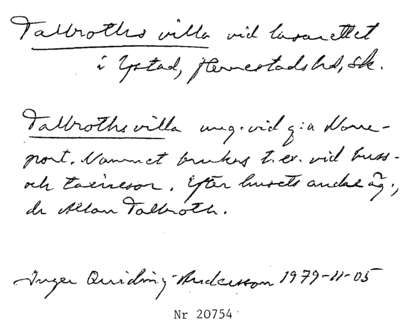 Talbroths villa vid lasarettet
i Ystad, Herrestads hd, Sk.
Talbroths villa ung. vid g:a Norre-
port. Namnet brukas t.ex. vid buss-
och taxiresor. Efter husets andre äg.,
dr Allan Talbroth.
Inger Quiding-Andersson 1979-11-05
Nr 20754